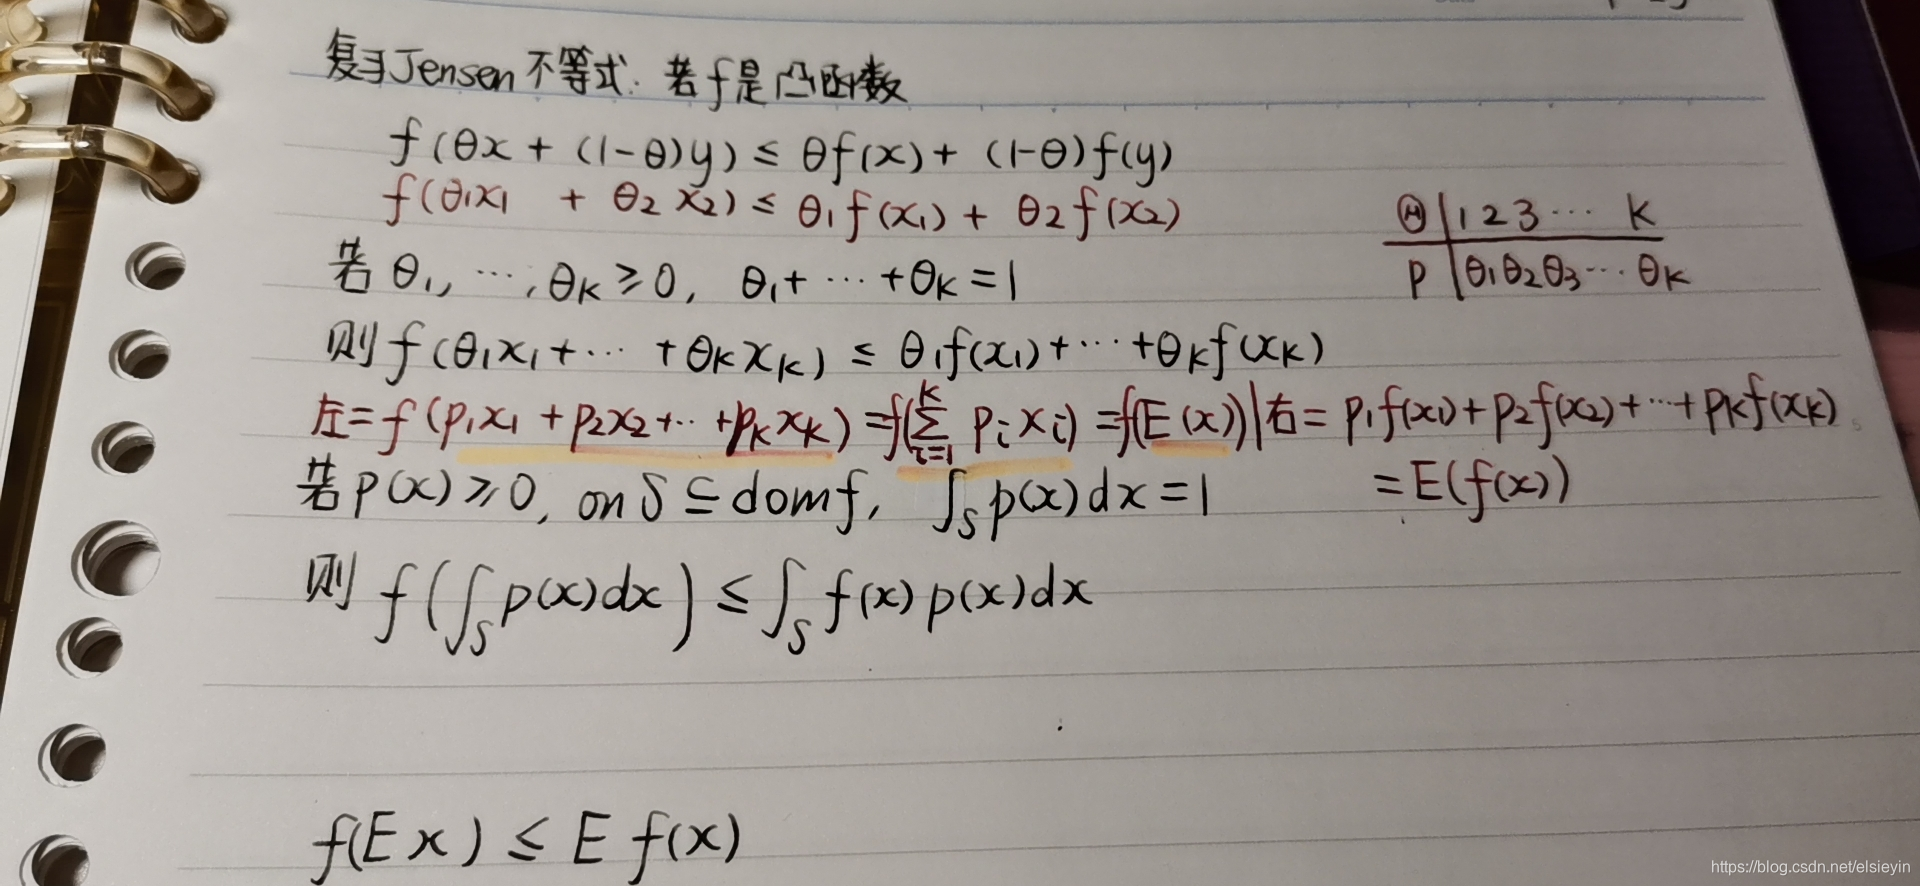 复习Jensen不等式. 若f是凸函数
f(θx + (1-θ)y) ≤ θf(x) + (1-θ)f(y)
f(θ₁x₁ + θ₂x₂) ≤ θ₁f(x₁) + θ₂f(x₂)
Θ | 1 2 3 ⋯ K
若 θ₁, ⋯, θK ≥ 0, θ₁ + ⋯ + θK = 1
P | θ₁ θ₂ θ₃ ⋯ θK
则 f(θ₁x₁ + ⋯ + θK xK) ≤ θ₁f(x₁) + ⋯ + θK f(xK)
左 = f(p₁x₁ + p₂x₂ + ⋯ + pK xK) = f(∑_{i=1}^{K} pᵢxᵢ) = f(E(x)) | 右 = p₁f(x₁) + p₂f(x₂) + ⋯ + pK f(xK)
= E(f(x))
若 p(x) ≥ 0, on S ⊆ dom f, ∫_S p(x)dx = 1
则 f(∫_S p(x)dx) ≤ ∫_S f(x)p(x)dx
f(Ex) ≤ E f(x)
https://blog.csdn.net/elsieyin